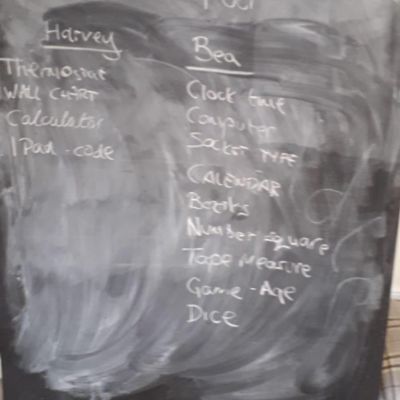 Harvey
Thermostat
WALL CHART
Calculator
IPad - code
Bea
Clock time
Computer
Socket TYPE
CALENDAR
Books
Number square
Tape Measure
Game - Age
Dice